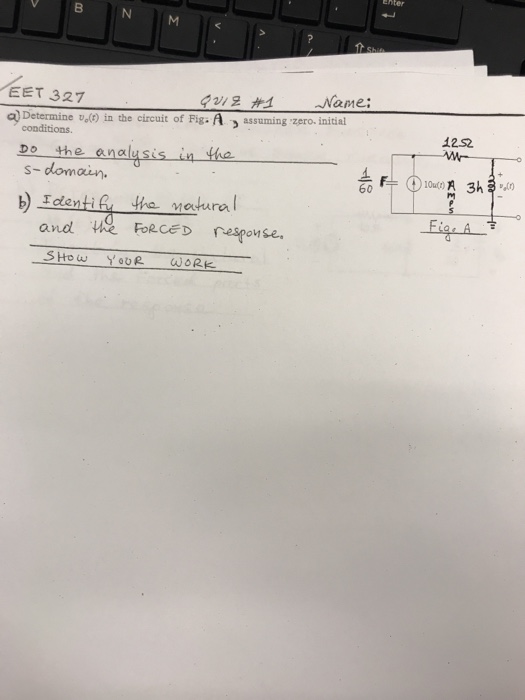 B
N
M
<
>
?
Enter
⇧ Shift
EET 327 QUIZ #1 Name:
a) Determine vₒ(t) in the circuit of Fig. A, assuming zero initial
conditions.
DO the analysis in the
s-domain.
b) Identify the natural
and the FORCED response.
SHOW YOUR WORK
12Ω
1/60 F
10u(t) AMPS
3h
+
vₒ(t)
-
Fig. A